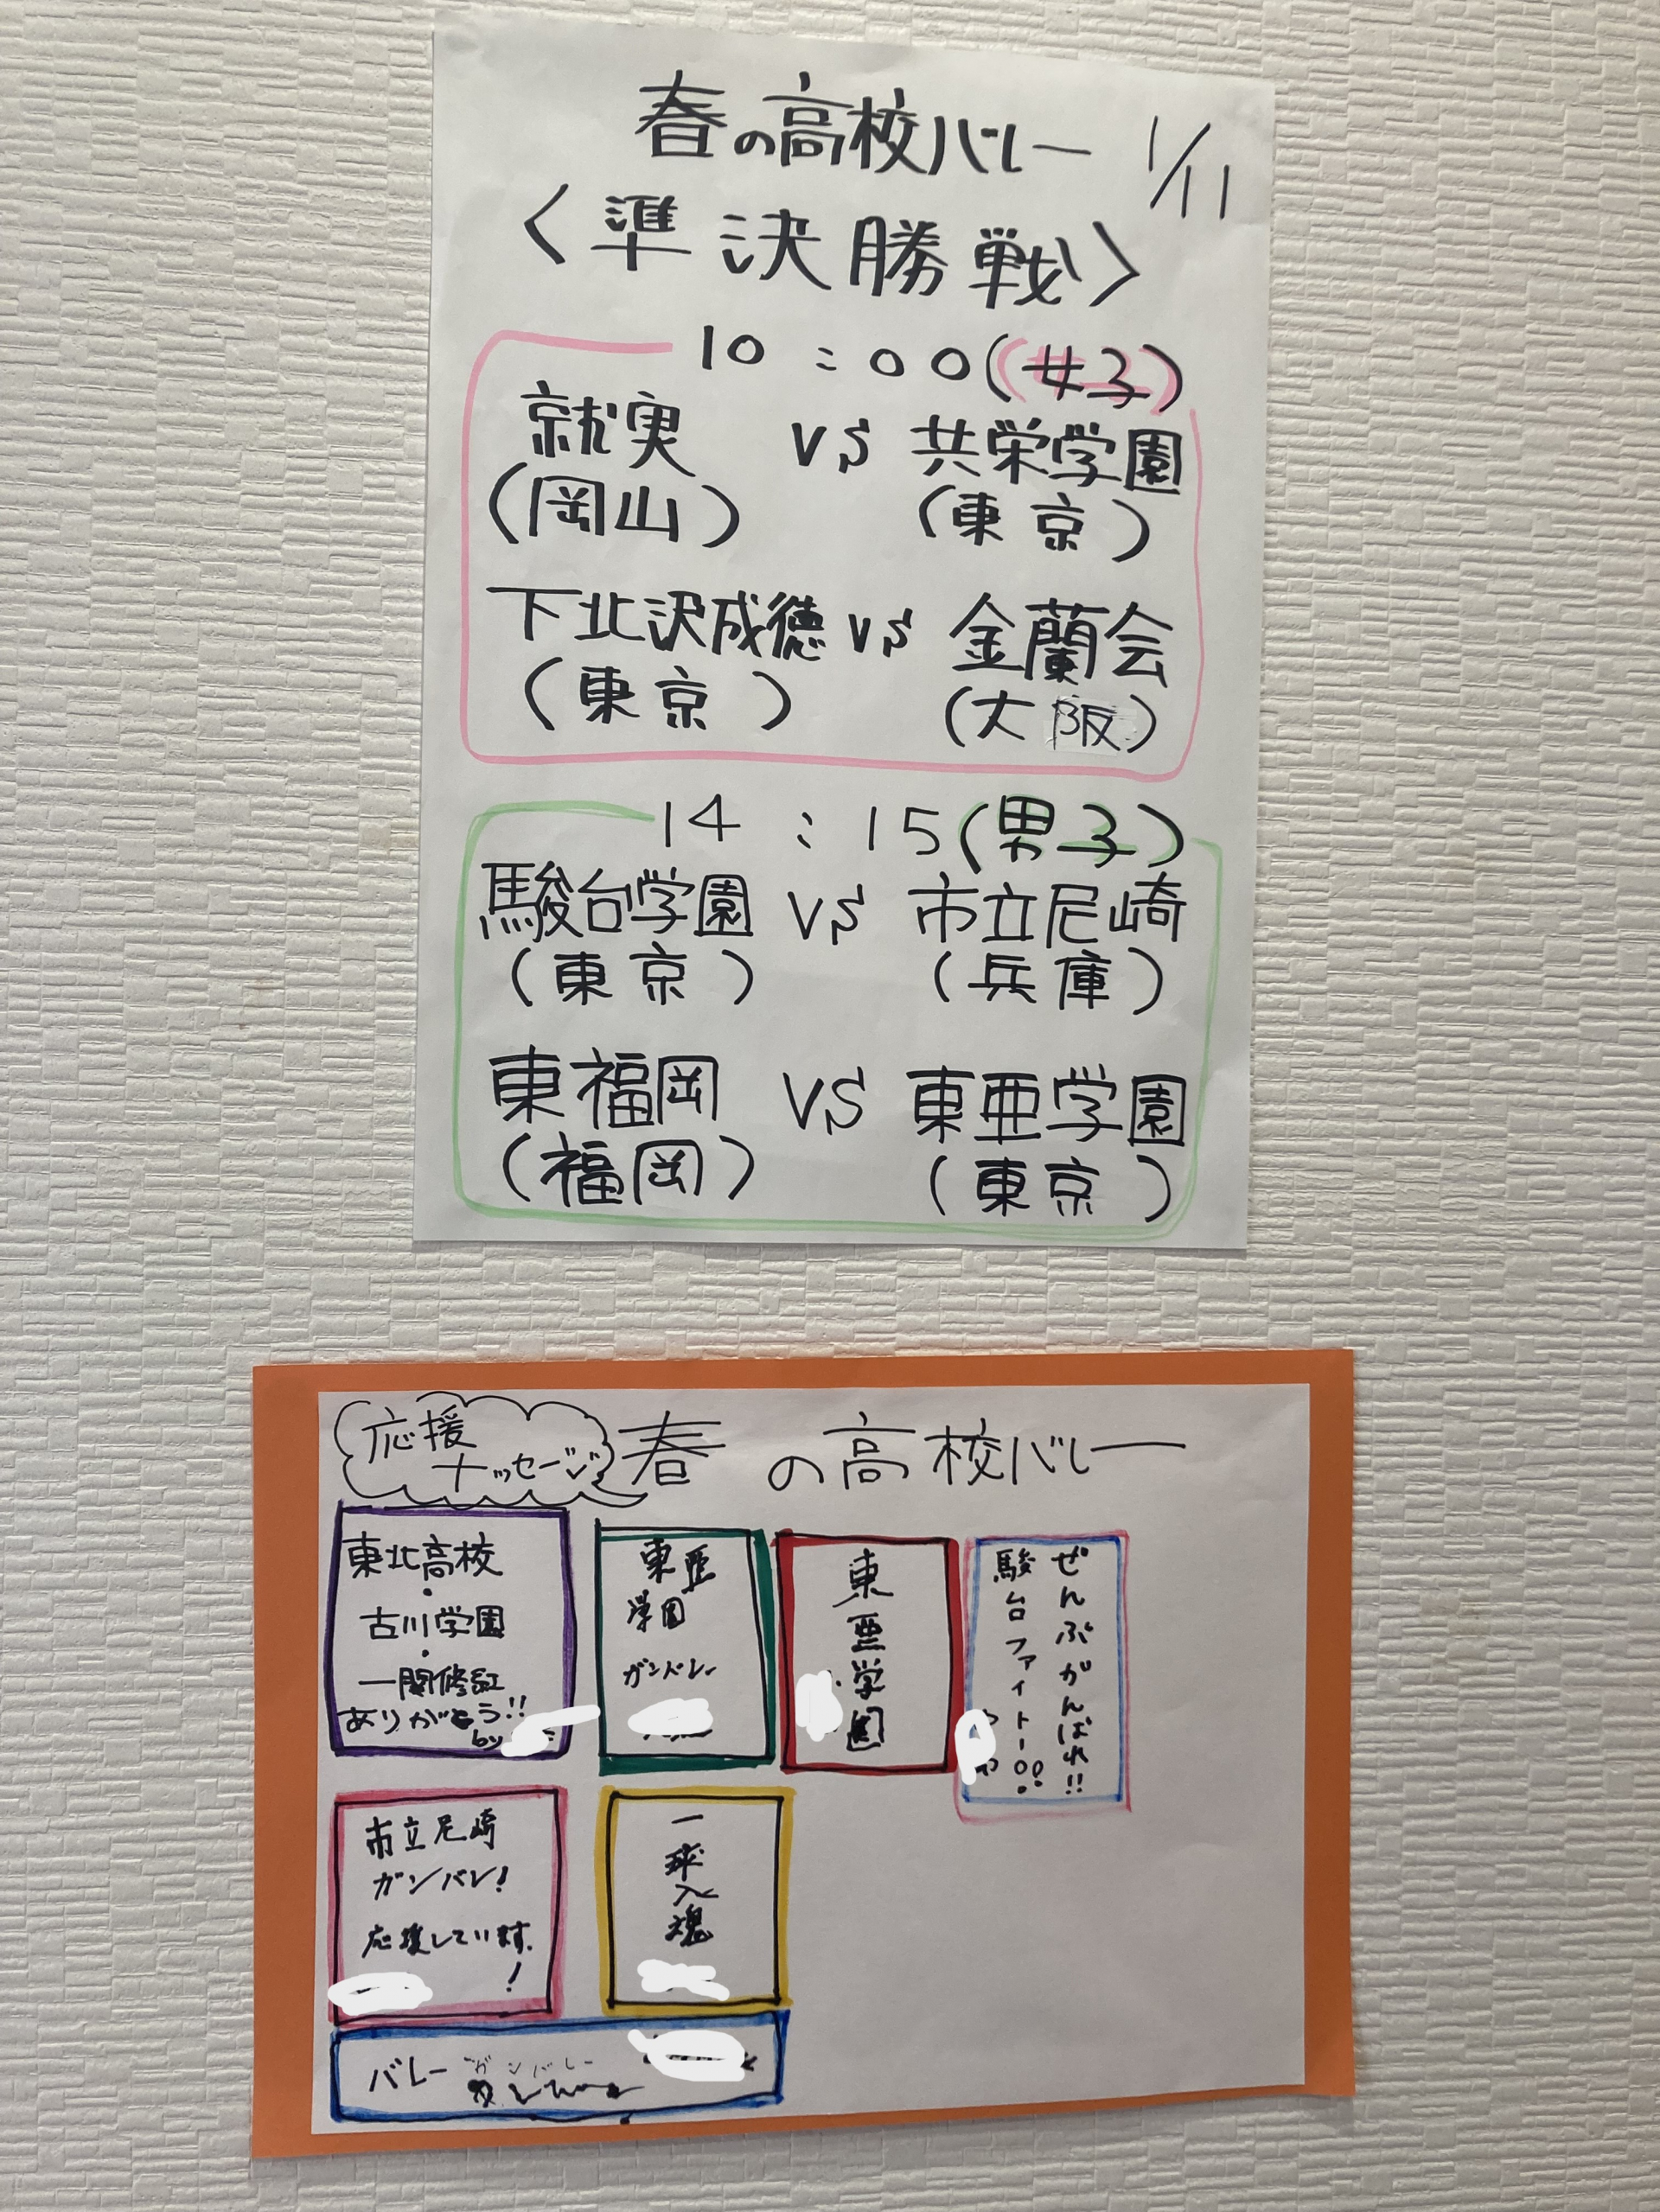 春の高校バレー 1/11
〈準決勝戦〉
10:00(女子)
就実 VS 共栄学園
(岡山) (東京)
下北沢成徳 VS 金蘭会
(東京) (大阪)
14:15(男子)
駿台学園 VS 市立尼崎
(東京) (兵庫)
東福岡 VS 東亜学園
(福岡) (東京)
応援
メッセージ
春の高校バレー
東北高校
・
古川学園
・
一関修紅
ありがとう!!
by
東亜
学園
ガンバレー
東亜学園
ぜんぶがんばれ!!
駿台ファイトー!!
市立尼崎
ガンバレ!
応援しています.
!
一球入魂
バレー ガンバレー